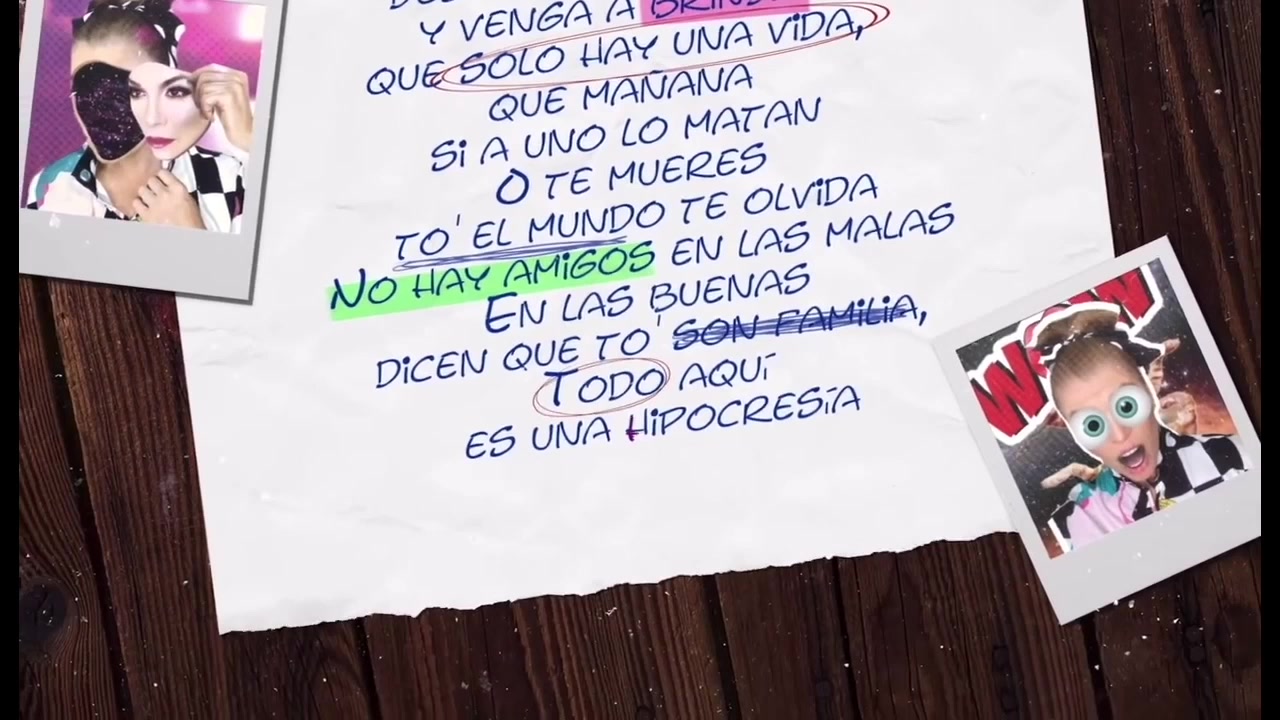 Y VENGA A BRINDA
QUE SOLO HAY UNA VIDA,
QUE MAÑANA
SI A UNO LO MATAN
O TE MUERES
TO' EL MUNDO TE OLVIDA
NO HAY AMIGOS EN LAS MALAS
EN LAS BUENAS
DICEN QUE TO' SON FAMILIA,
TODO AQUÍ
ES UNA HIPOCRESÍA